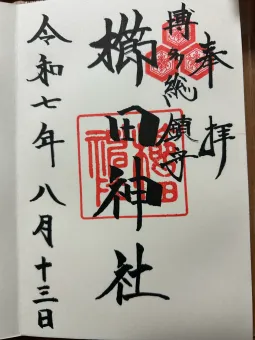 奉拝
博多総鎮守
櫛田神社
令和七年八月十三日